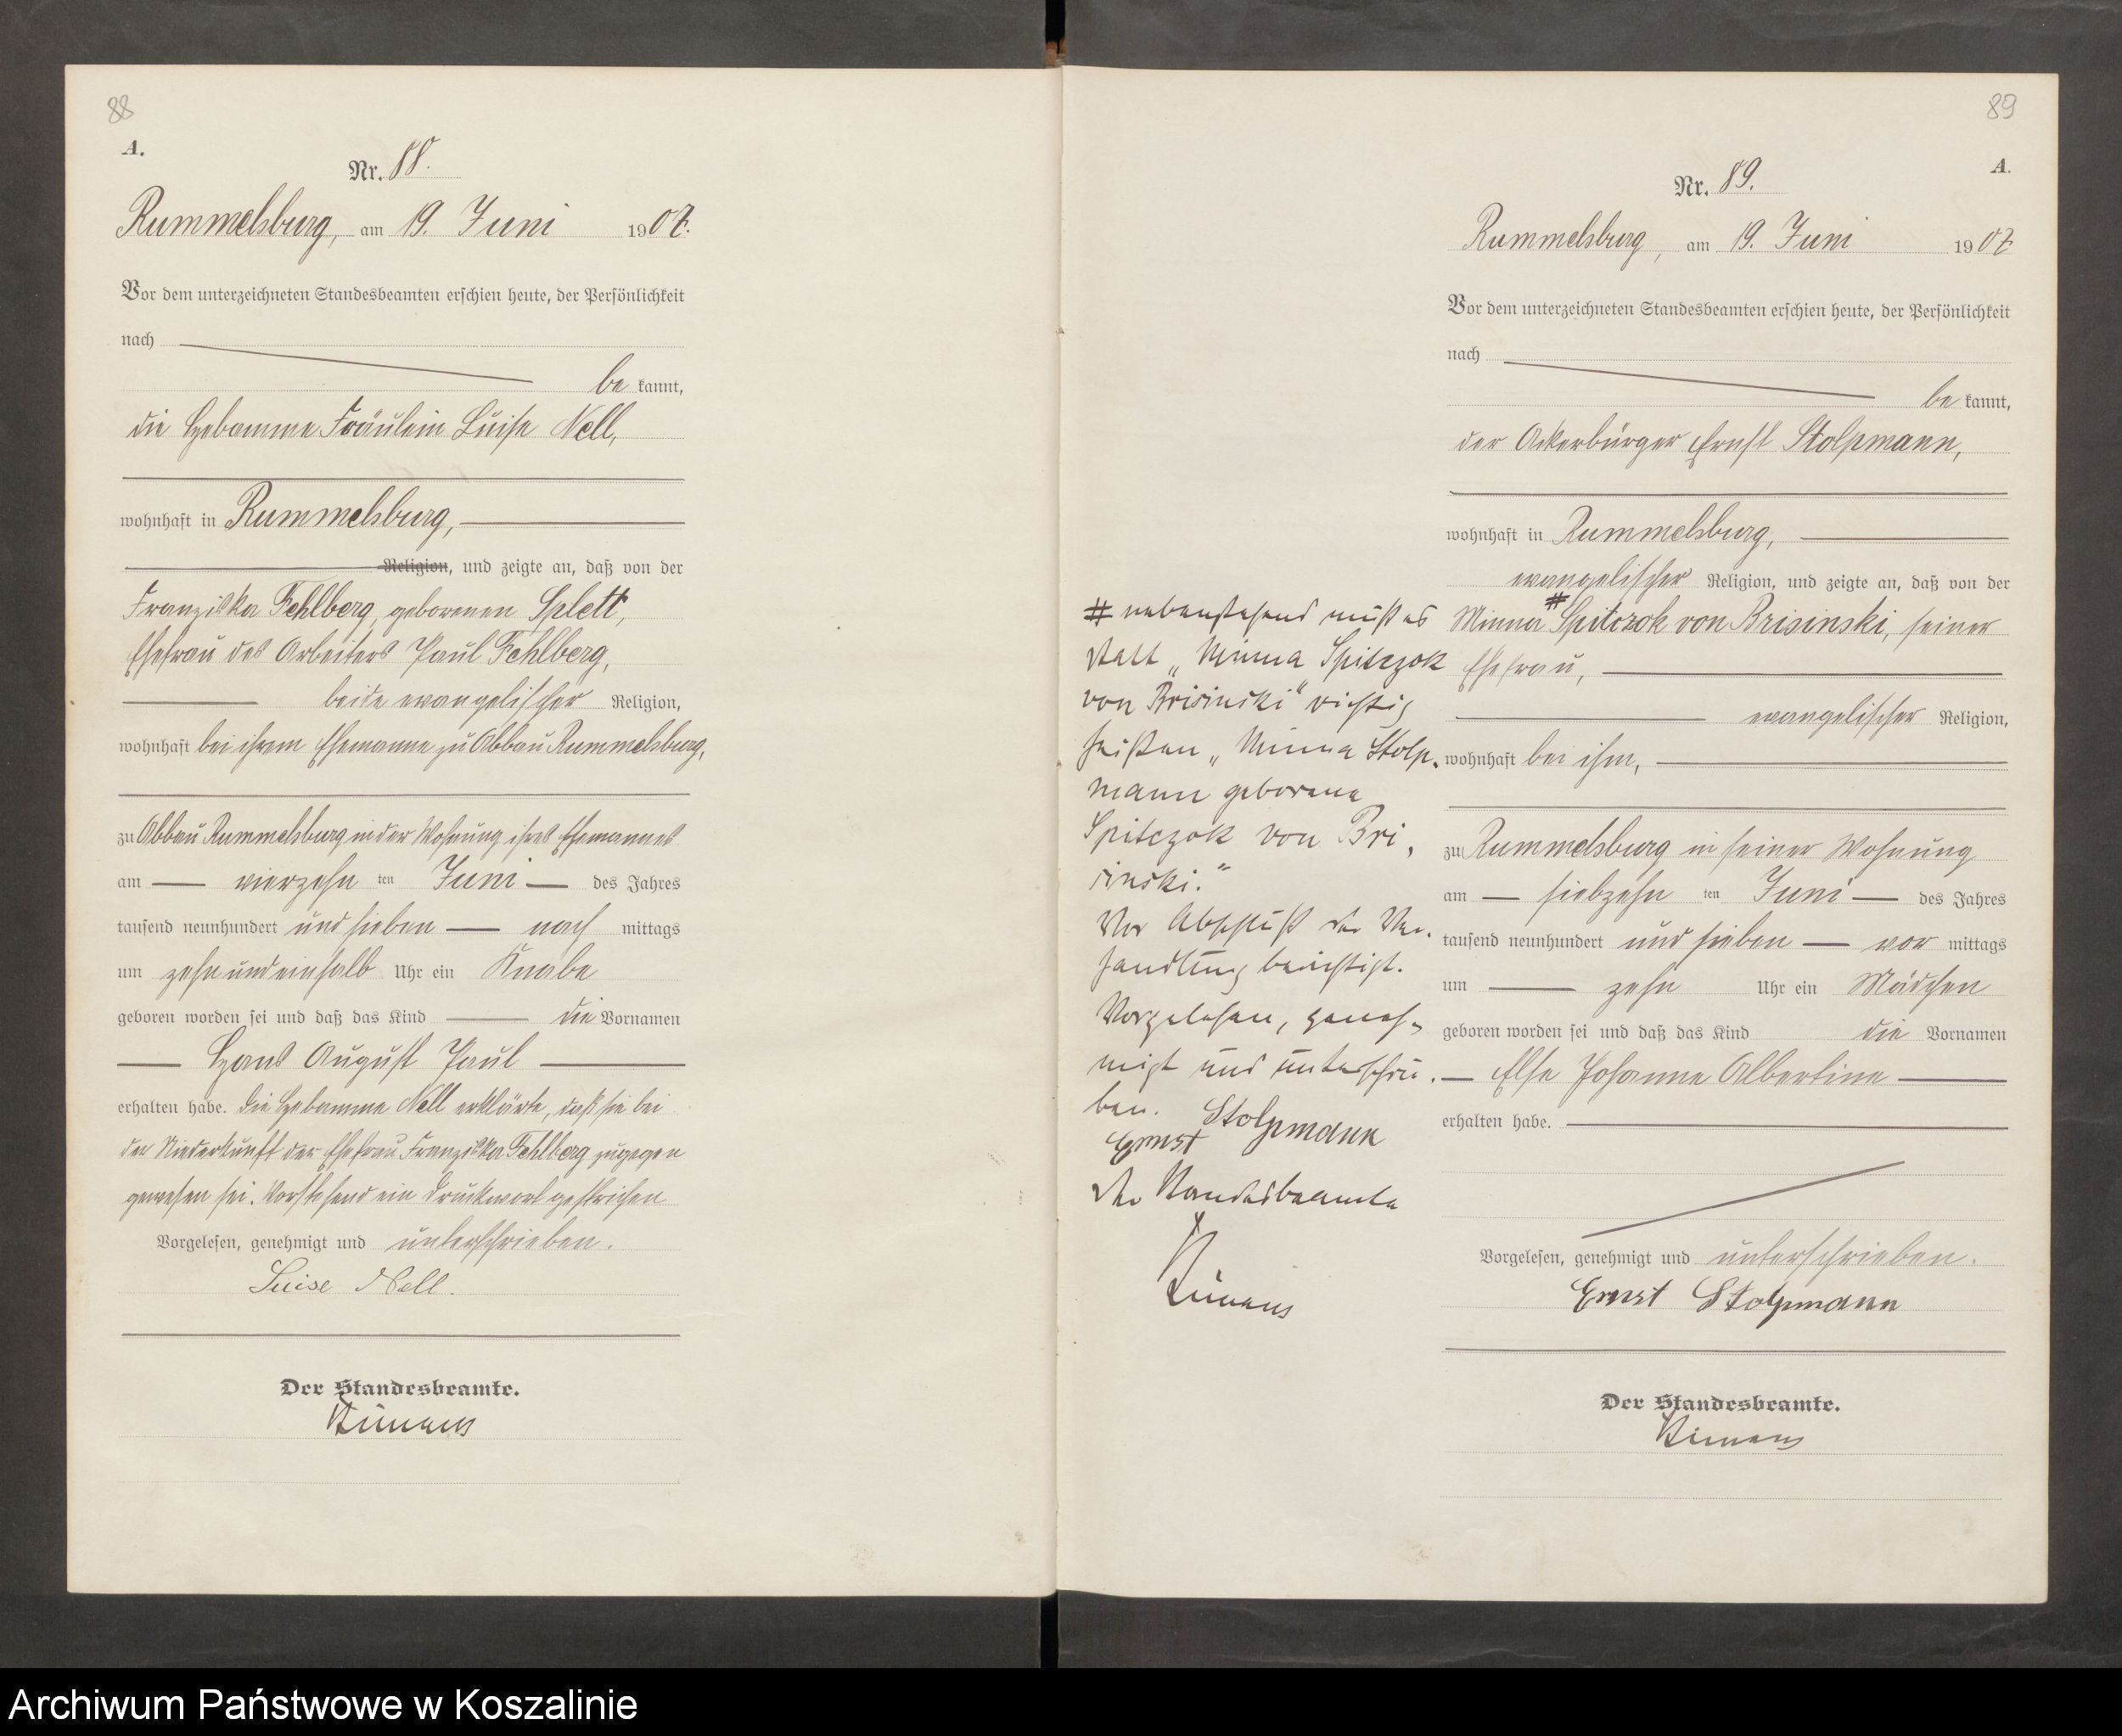 88
A.
Nr. 88.
Rummelsburg, am 19. Juni 1907.
Vor dem unterzeichneten Standesbeamten erschien heute, der Persönlichkeit
nach
be kannt,
die Hebamme Fräulein Luise Nell,
wohnhaft in Rummelsburg,
Religion, und zeigte an, daß von der
Franziska Fehlberg, geborenen Splett,
Ehefrau des Arbeiters Paul Fehlberg,
beide evangelischer Religion,
wohnhaft bei ihrem Ehemanne zu Abbau Rummelsburg,
zu Abbau Rummelsburg in der Wohnung ihres Ehemannes
am vierzehn ten Juni des Jahres
tausend neunhundert und sieben nach mittags
um zehn und einhalb Uhr ein Knabe
geboren worden sei und daß das Kind die Vornamen
Hans August Paul
erhalten habe. Die Hebamme Nell erklärte, daß sie bei
der Niederkunft der Ehefrau Franziska Fehlberg zugegen
gewesen sei. Vorstehend ein Druckwort gestrichen
Vorgelesen, genehmigt und unterschrieben.
Luise Nell.
Der Standesbeamte.
89
A.
Nr. 89.
Rummelsburg, am 19. Juni 1907
Vor dem unterzeichneten Standesbeamten erschien heute, der Persönlichkeit
nach
be kannt,
der Ackerbürger Ernst Stolpmann,
wohnhaft in Rummelsburg,
evangelischer Religion, und zeigte an, daß von der
Minna # Spitczok von Brisinski, seiner
Ehefrau,
evangelischer Religion,
wohnhaft bei ihm,
zu Rummelsburg in seiner Wohnung
am siebzehn ten Juni des Jahres
tausend neunhundert und sieben vor mittags
um zehn Uhr ein Mädchen
geboren worden sei und daß das Kind die Vornamen
Else Johanne Albertine
erhalten habe.
Vorgelesen, genehmigt und unterschrieben.
Ernst Stolpmann
Der Standesbeamte.
# nebenstehend muß es
statt „Minna Spitczok
von Brisinski" richtig
heißen „Minna Stolp-
mann geborene
Spitczok von Bri-
sinski."
Vor Abschluß der Ver-
handlung berichtigt.
Vorgelesen, geneh-
migt und unterschrie-
ben.
Ernst Stolpmann
Der Standesbeamte
Archiwum Państwowe w Koszalinie